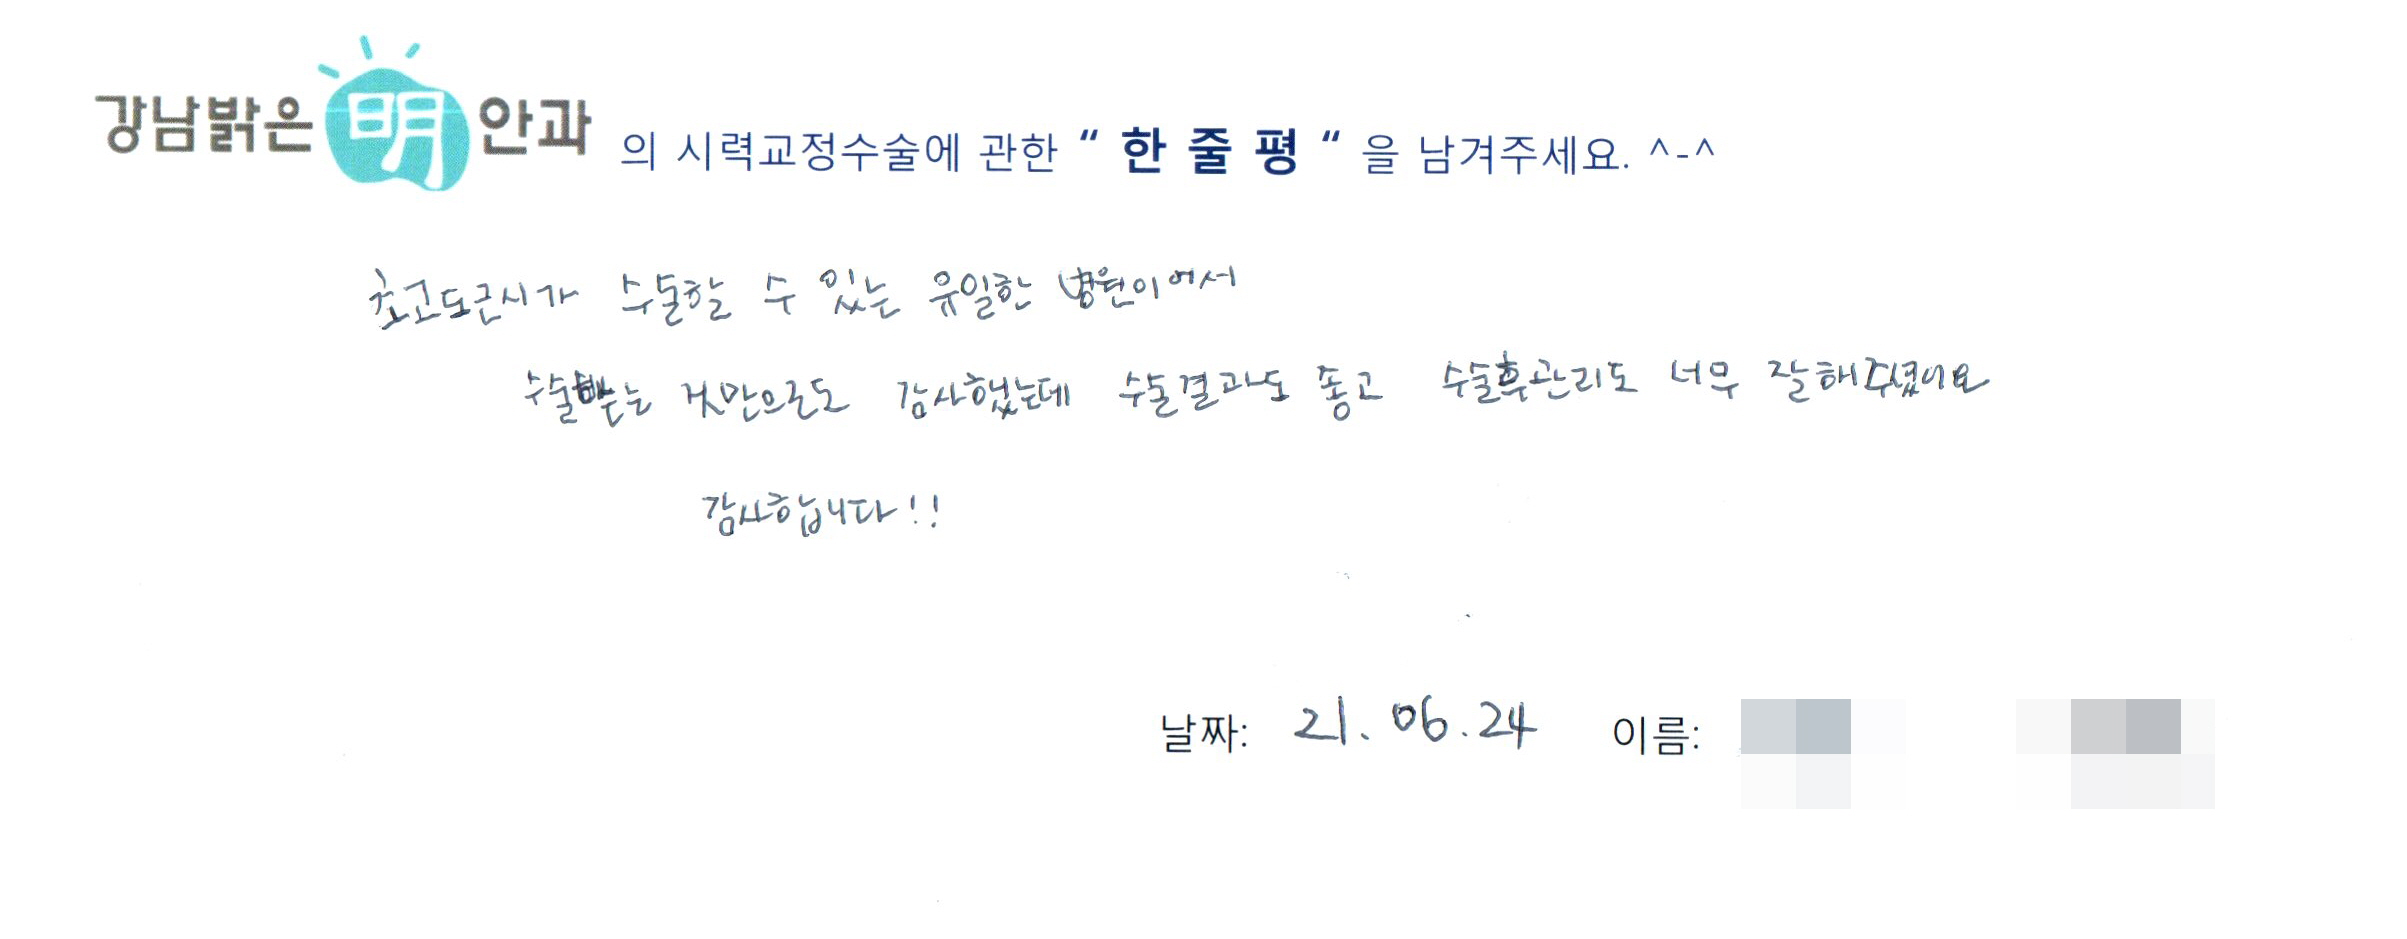 강남밝은 明 안과 의 시력교정수술에 관한 “ 한 줄 평 “ 을 남겨주세요. ^-^
초고도근시가 수술할 수 있는 유일한 병원이어서
수술받는 것만으로도 감사했는데 수술결과도 좋고 수술후관리도 너무 잘해주셨어요
감사합니다!!
날짜: 21. 06. 24 이름: